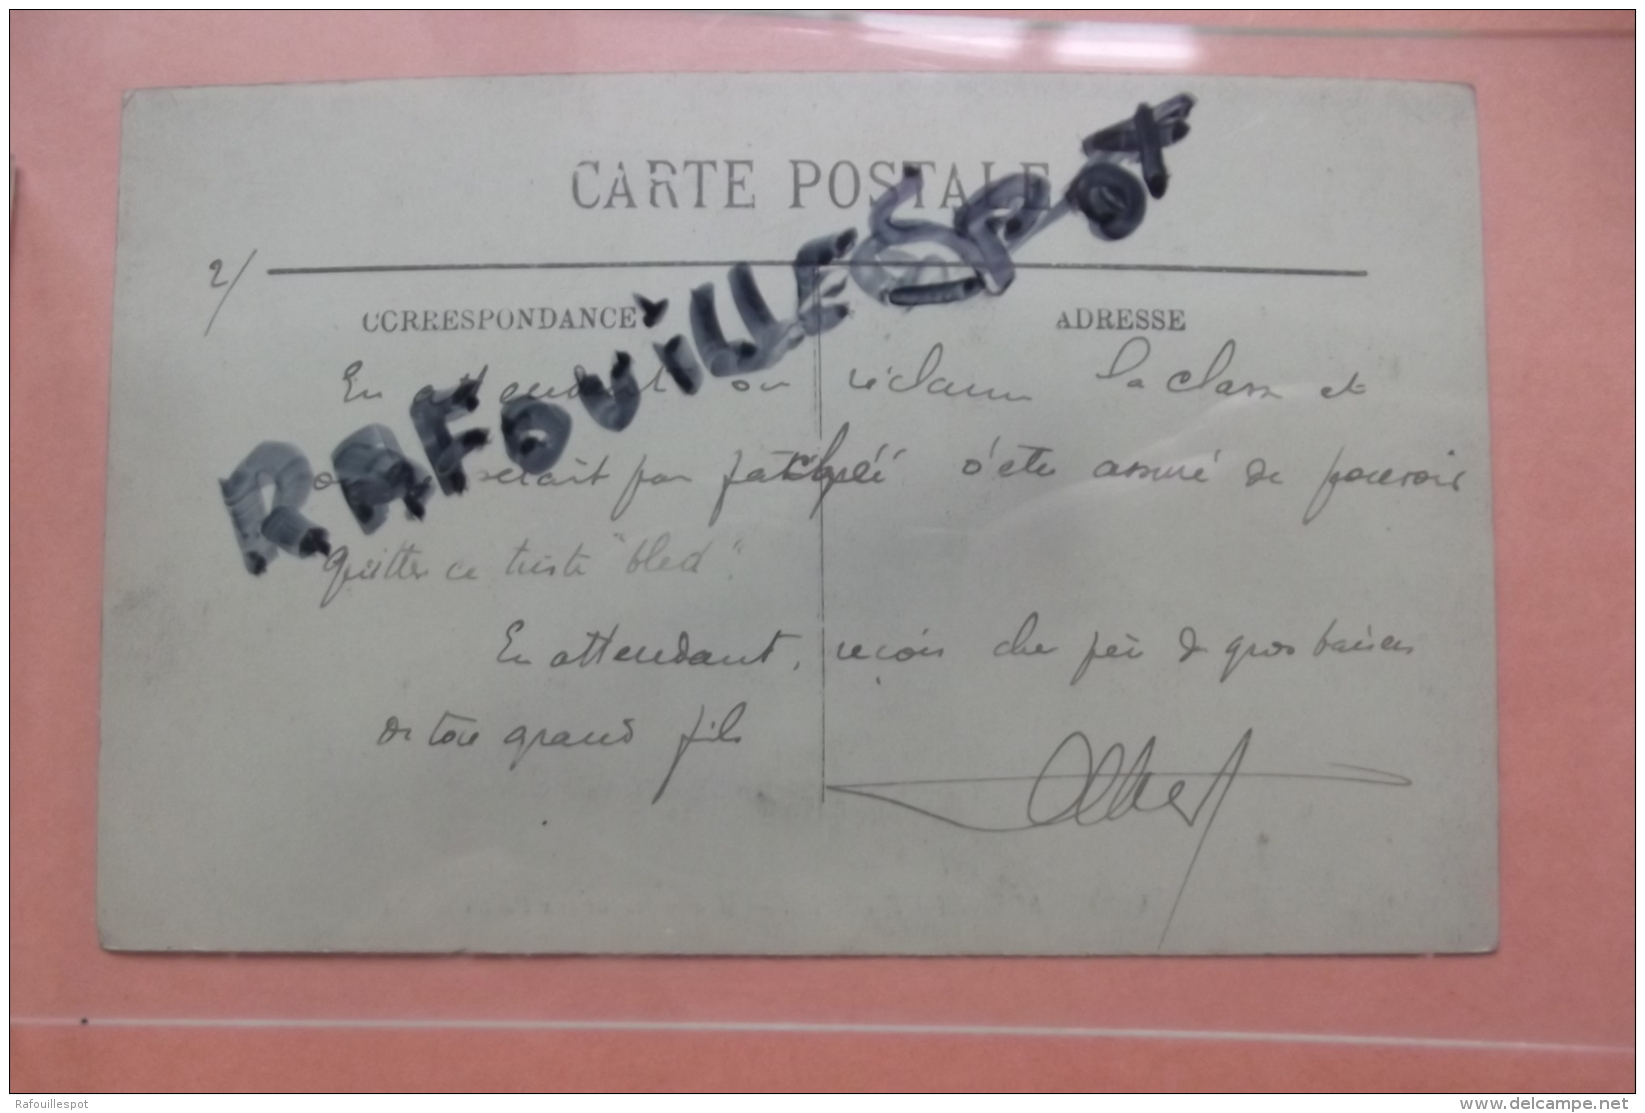 CARTE POSTALE
RAFOUILLESPOT
2/
CORRESPONDANCE
ADRESSE
En attendant on réclame la classe et
on serait pas fatigué d'être assuré de pouvoir
quitter ce triste "bled".
En attendant, reçois cher père de gros baisers
de ton grand fils
Albert
Rafouillespot
www.delcampe.net